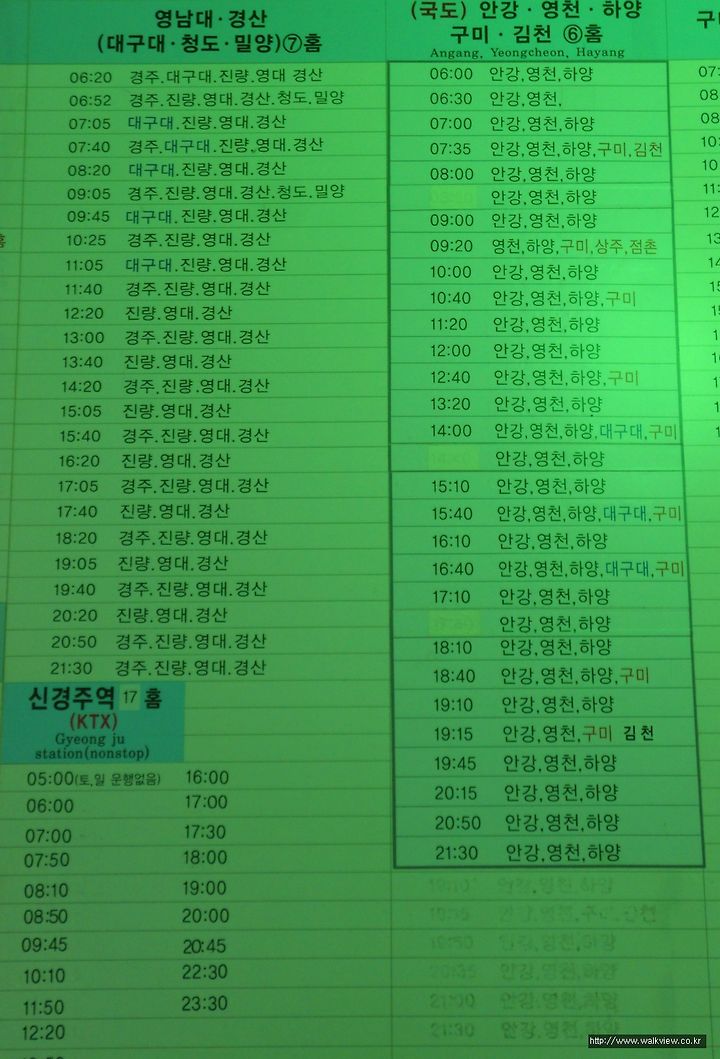 영남대·경산
(대구대·청도·밀양)⑦홈
06:20 경주.대구대.진량.영대 경산
06:52 경주.진량.영대.경산.청도.밀양
07:05 대구대.진량.영대.경산
07:40 경주.대구대.진량.영대.경산
08:20 대구대.진량.영대.경산
09:05 경주.진량.영대.경산.청도.밀양
09:45 대구대.진량.영대.경산
10:25 경주.진량.영대.경산
11:05 대구대.진량.영대.경산
11:40 경주.진량.영대.경산
12:20 진량.영대.경산
13:00 경주.진량.영대.경산
13:40 진량.영대.경산
14:20 경주.진량.영대.경산
15:05 진량.영대.경산
15:40 경주.진량.영대.경산
16:20 진량.영대.경산
17:05 경주.진량.영대.경산
17:40 진량.영대.경산
18:20 경주.진량.영대.경산
19:05 진량.영대.경산
19:40 경주.진량.영대.경산
20:20 진량.영대.경산
20:50 경주.진량.영대.경산
21:30 경주.진량.영대.경산
신경주역 17 홈
(KTX)
Gyeong ju
station(nonstop)
05:00(토,일 운행없음) 16:00
06:00 17:00
07:00 17:30
07:50 18:00
08:10 19:00
08:50 20:00
09:45 20:45
10:10 22:30
11:50 23:30
12:20
(국도) 안강·영천·하양
구미·김천 ⑥홈
Angang, Yeongcheon, Hayang
06:00 안강,영천,하양
06:30 안강,영천,
07:00 안강,영천,하양
07:35 안강,영천,하양,구미,김천
08:00 안강,영천,하양
안강,영천,하양
09:00 안강,영천,하양
09:20 영천,하양,구미,상주,점촌
10:00 안강,영천,하양
10:40 안강,영천,하양,구미
11:20 안강,영천,하양
12:00 안강,영천,하양
12:40 안강,영천,하양,구미
13:20 안강,영천,하양
14:00 안강,영천,하양,대구대,구미
안강,영천,하양
15:10 안강,영천,하양
15:40 안강,영천,하양,대구대,구미
16:10 안강,영천,하양
16:40 안강,영천,하양,대구대,구미
17:10 안강,영천,하양
안강,영천,하양
18:10 안강,영천,하양
18:40 안강,영천,하양,구미
19:10 안강,영천,하양
19:15 안강,영천,구미 김천
19:45 안강,영천,하양
20:15 안강,영천,하양
20:50 안강,영천,하양
21:30 안강,영천,하양
http://www.walkview.co.kr